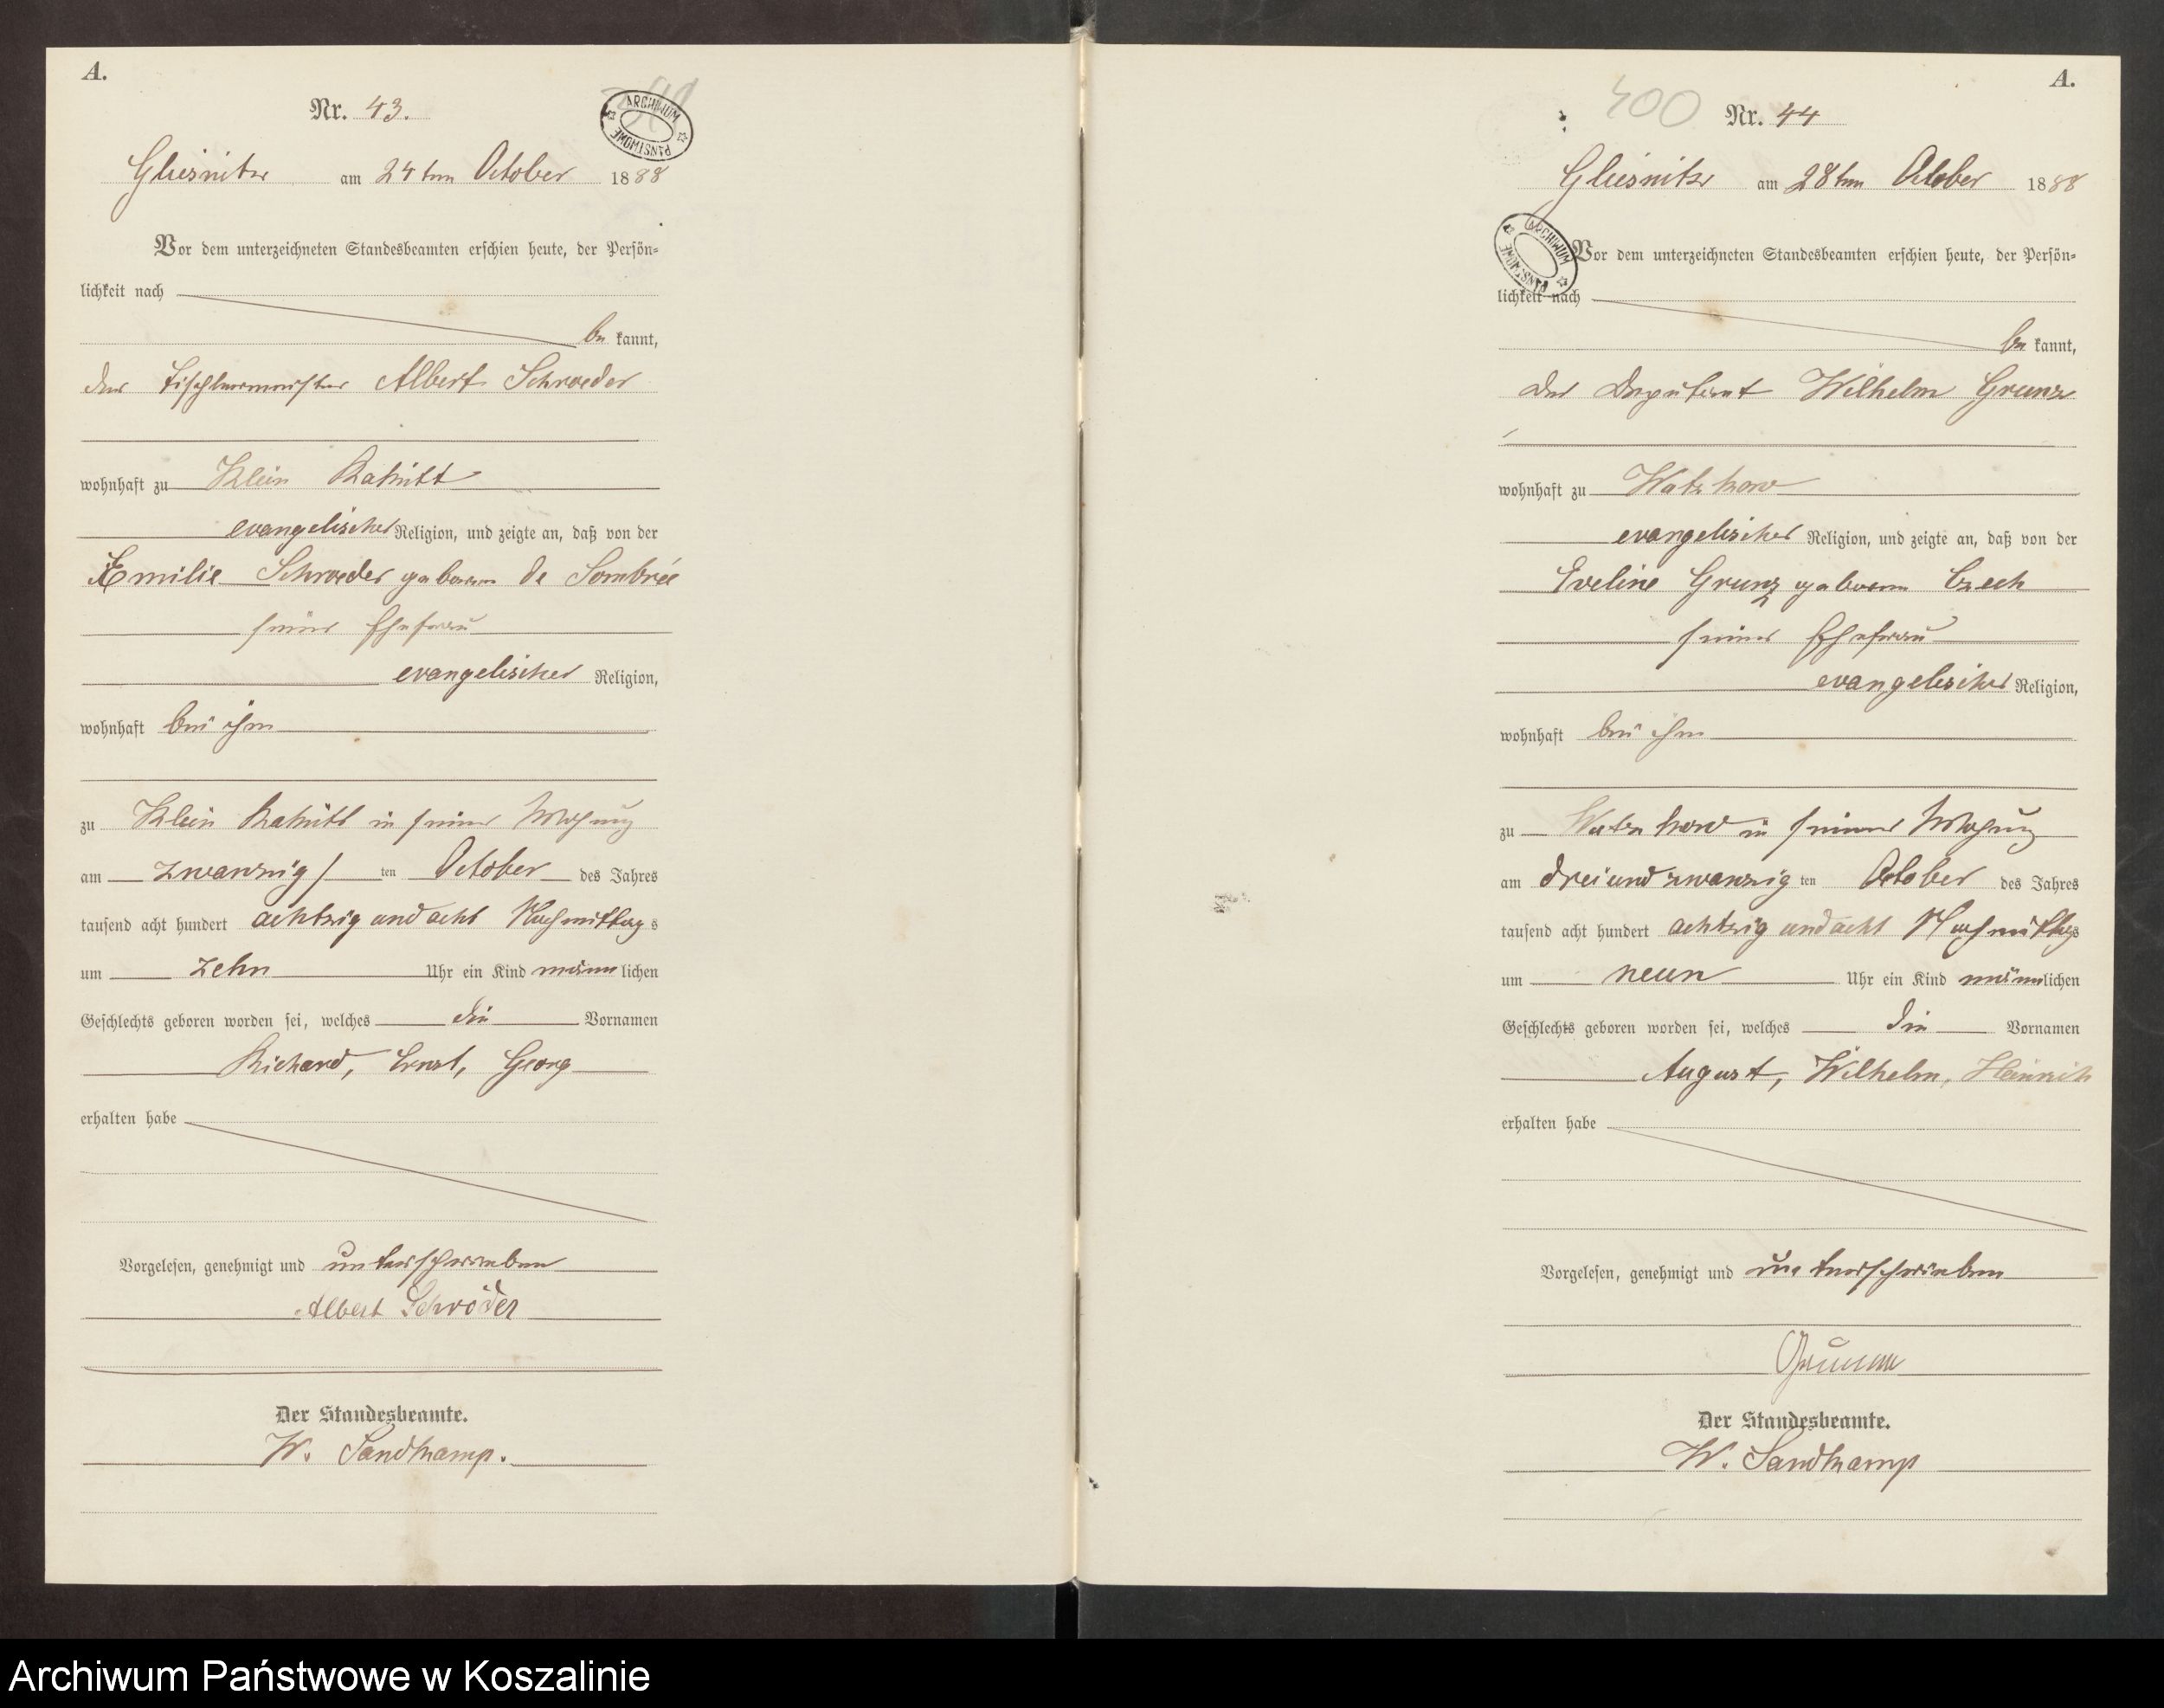 A.
Nr. 43.
ARCHIWUM PAŃSTWOWE
Gliesnitz am 24ten October 1888
Vor dem unterzeichneten Standesbeamten erschien heute, der Persön-
lichkeit nach
be kannt,
der Tischlermeister Albert Schroeder
wohnhaft zu Klein Rakitt
evangelischer Religion, und zeigte an, daß von der
Emilie Schroeder geboren de Sombrée
seiner Ehefrau
evangelischer Religion,
wohnhaft bei ihm
zu Klein Rakitt in seiner Wohnung
am zwanzigsten October des Jahres
tausend acht hundert achtzig und acht Nachmittags
um zehn Uhr ein Kind männlichen
Geschlechts geboren worden sei, welches die Vornamen
Richard, Ernst, Georg
erhalten habe
Vorgelesen, genehmigt und unterschrieben
Albert Schröder
Der Standesbeamte.
W. Sandkamp.
A.
400 Nr. 44
Gliesnitz am 28ten October 1888
ARCHIWUM PAŃSTWOWE
Vor dem unterzeichneten Standesbeamten erschien heute, der Persön-
lichkeit nach
be kannt,
der Deputant Wilhelm Grunz
wohnhaft zu Watzkow
evangelischer Religion, und zeigte an, daß von der
Eveline Grunz geboren Czech
seiner Ehefrau
evangelischer Religion,
wohnhaft bei ihm
zu Watzkow in seiner Wohnung
am dreiundzwanzigten October des Jahres
tausend acht hundert achtzig und acht Nachmittags
um neun Uhr ein Kind männlichen
Geschlechts geboren worden sei, welches die Vornamen
August, Wilhelm, Heinrich
erhalten habe
Vorgelesen, genehmigt und unterschrieben
Der Standesbeamte.
W. Sandkamp
Archiwum Państwowe w Koszalinie